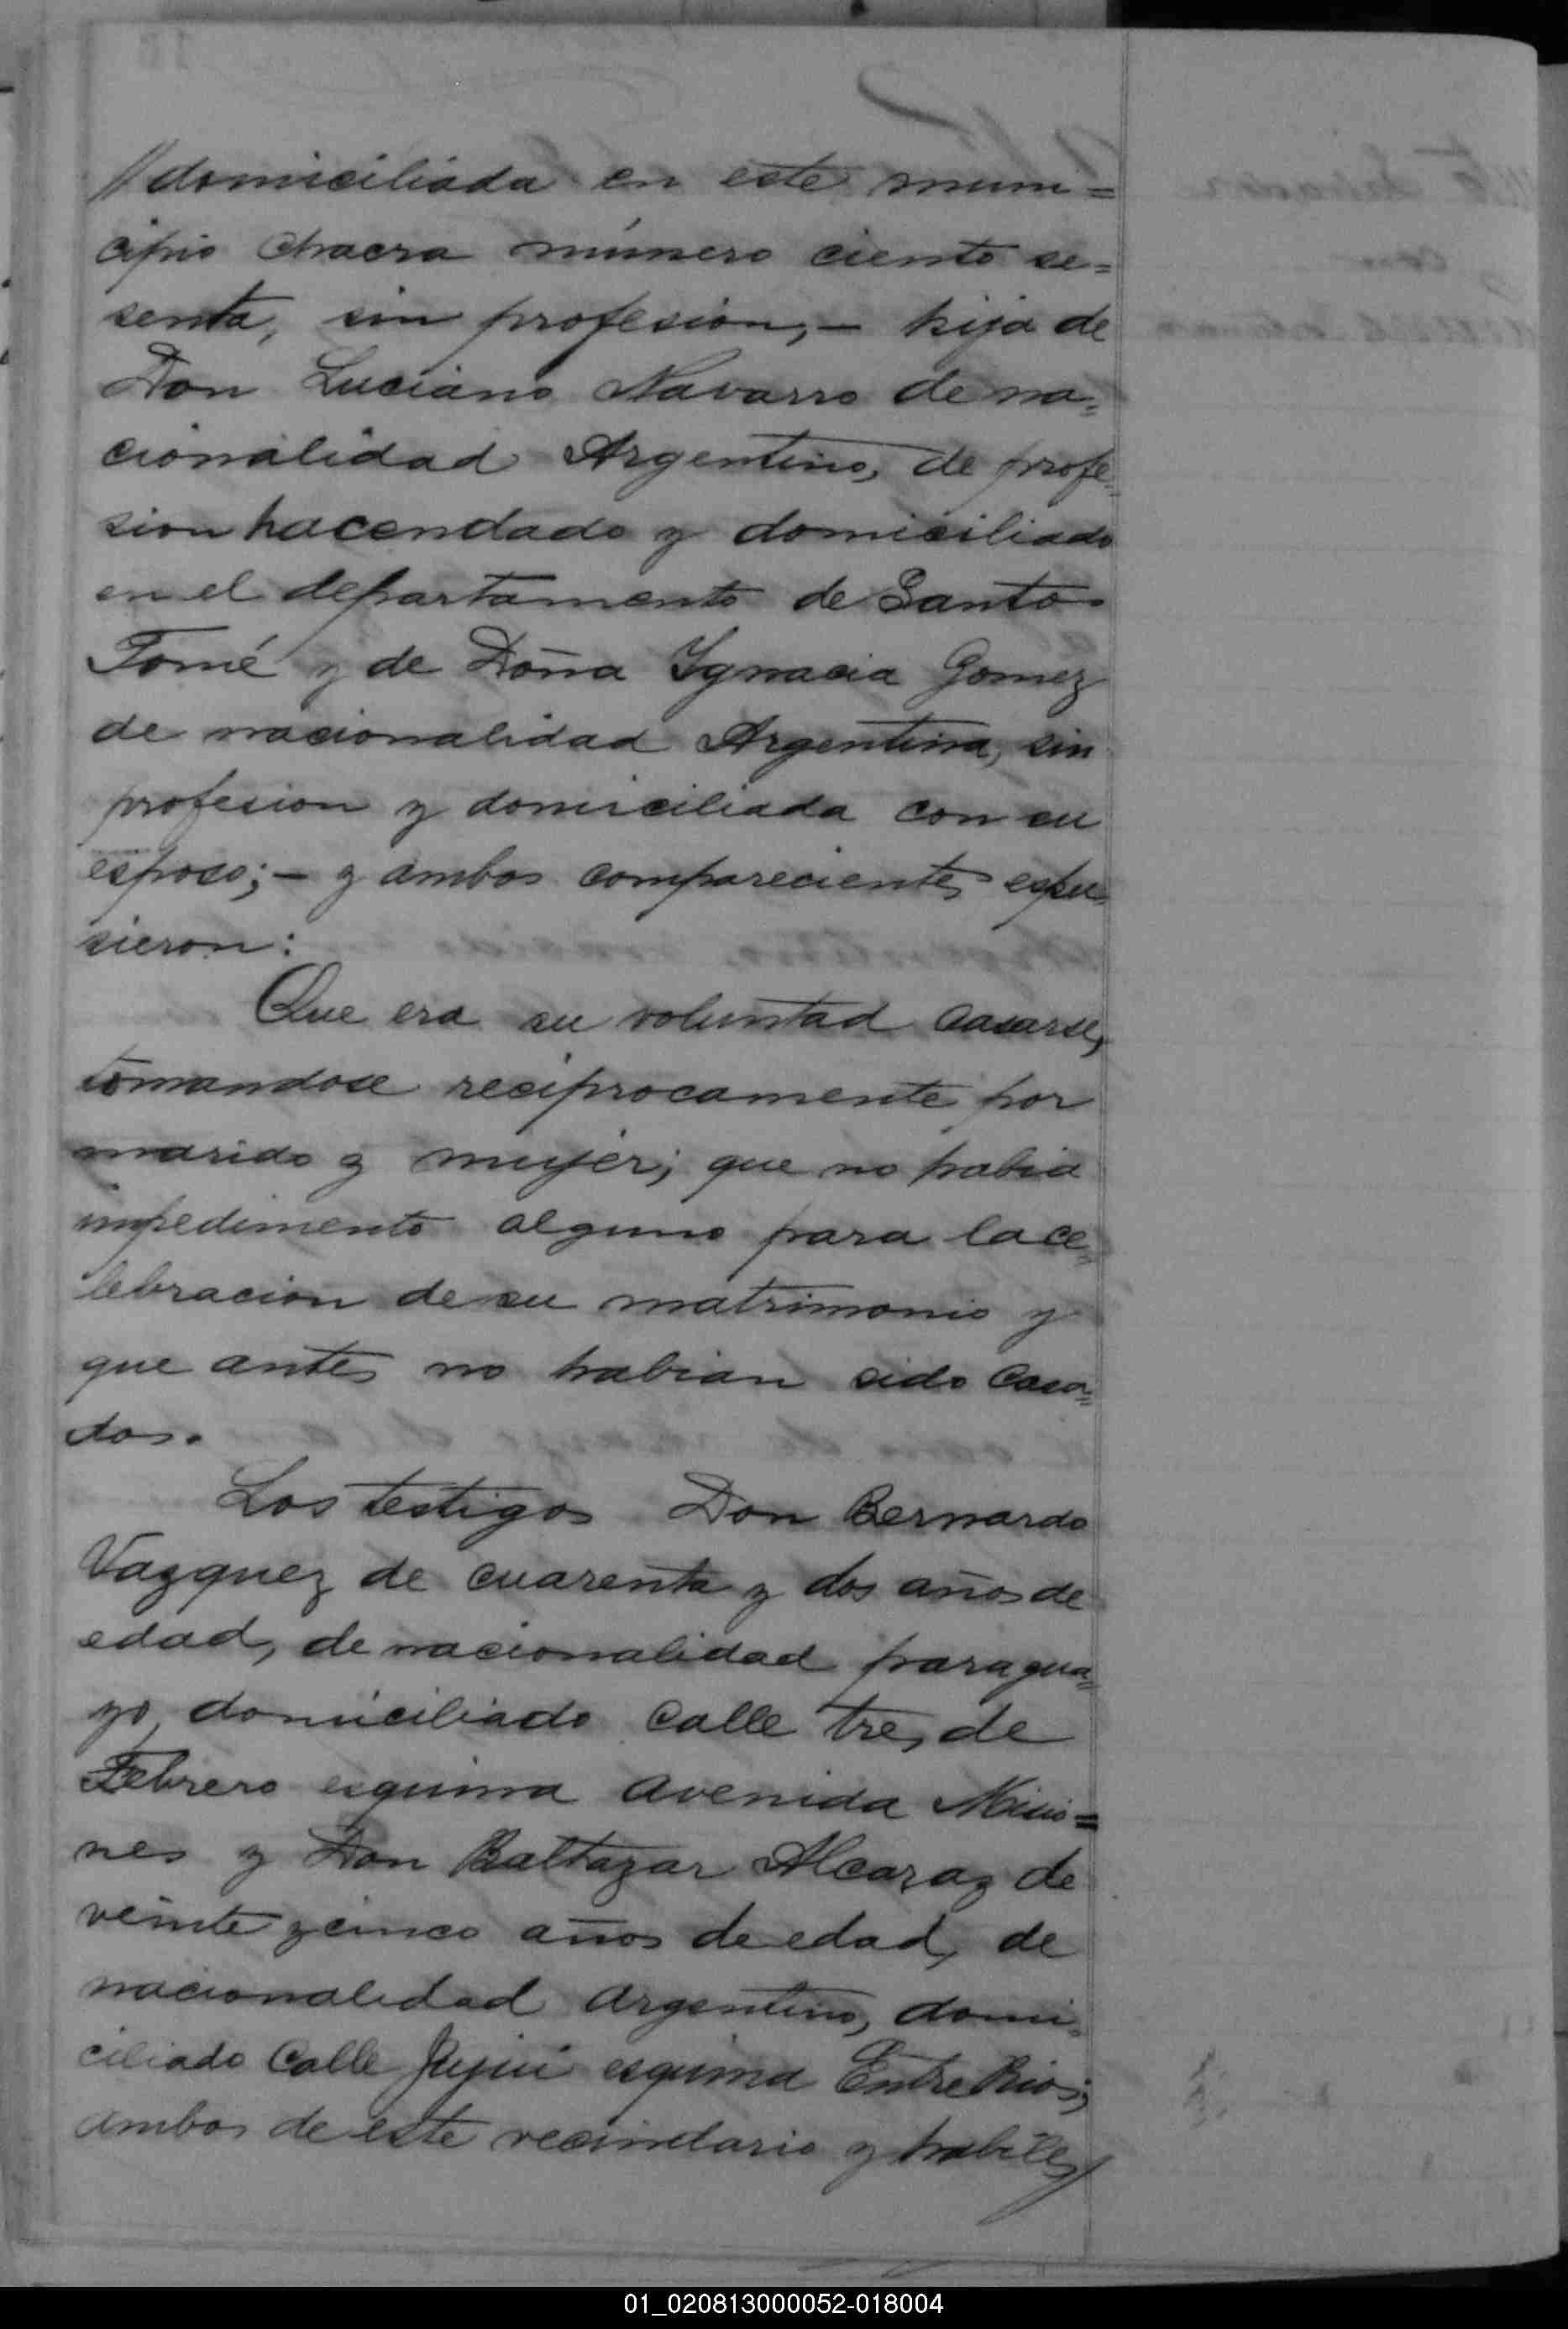 // domiciliada en este muni=
cipio chacra número ciento se=
senta, sin profesion, – hija de
Don Luciano Navarro de na=
cionalidad Argentino, de profe=
sion hacendado y domiciliado
en el departamento de Santo
Tomé y de Doña Ygnacia Gomez
de nacionalidad Argentina, sin
profesion y domiciliada con su
esposo; – y ambos comparecientes espu=
sieron:
Que era su voluntad casarse,
tomandose reciprocamente por
marido y mujer; que no habia
impedimento alguno para la ce=
lebracion de su matrimonio y
que antes no habian sido casa=
dos.
Los testigos Don Bernardo
Vazquez de cuarenta y dos años de
edad, de nacionalidad paragua=
yo, domiciliado calle tres de
Febrero esquina avenida Misio=
nes y Don Baltazar Alcaraz de
veinte y cinco años de edad, de
nacionalidad argentino, domi=
ciliado calle Jujui esquina Entre Rios;
ambos de este vecindario y habiles/
01_020813000052-018004